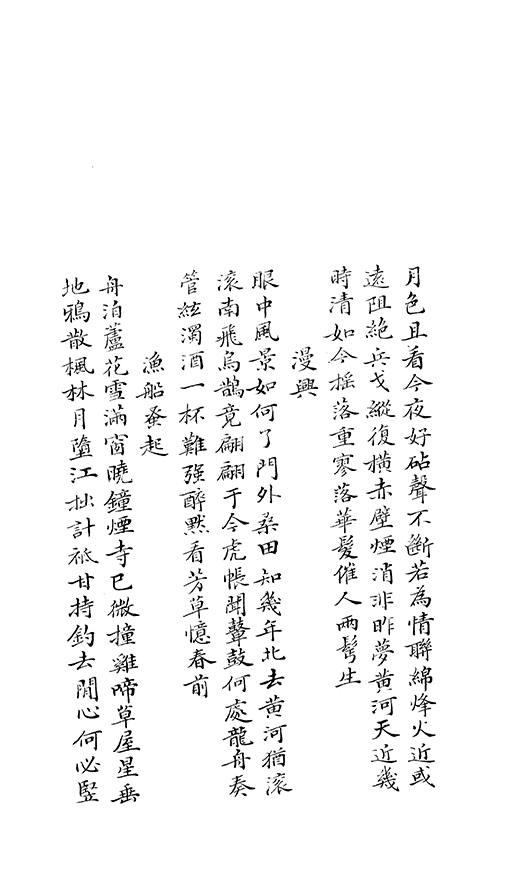 月色且看今夜好砧聲不斷若為情聯綿烽火近或
遠阻絕兵戈縱復橫赤壁煙消非昨夢黃河天近幾
時清如今搖落重寥落華髮催人兩鬢生
漫興
眼中風景如何了門外桑田知幾年北去黃河猶滾
滾南飛烏鵲竟翩翩于今虎帳聞鼙鼓何處龍舟奏
管絃濁酒一杯難强醉默看芳草憶春前
漁船蚤起
舟泊蘆花雪滿窗曉鐘煙寺已微撞雞啼草屋星垂
地鴉散楓林月墮江拙計祗甘持釣去閒心何必豎